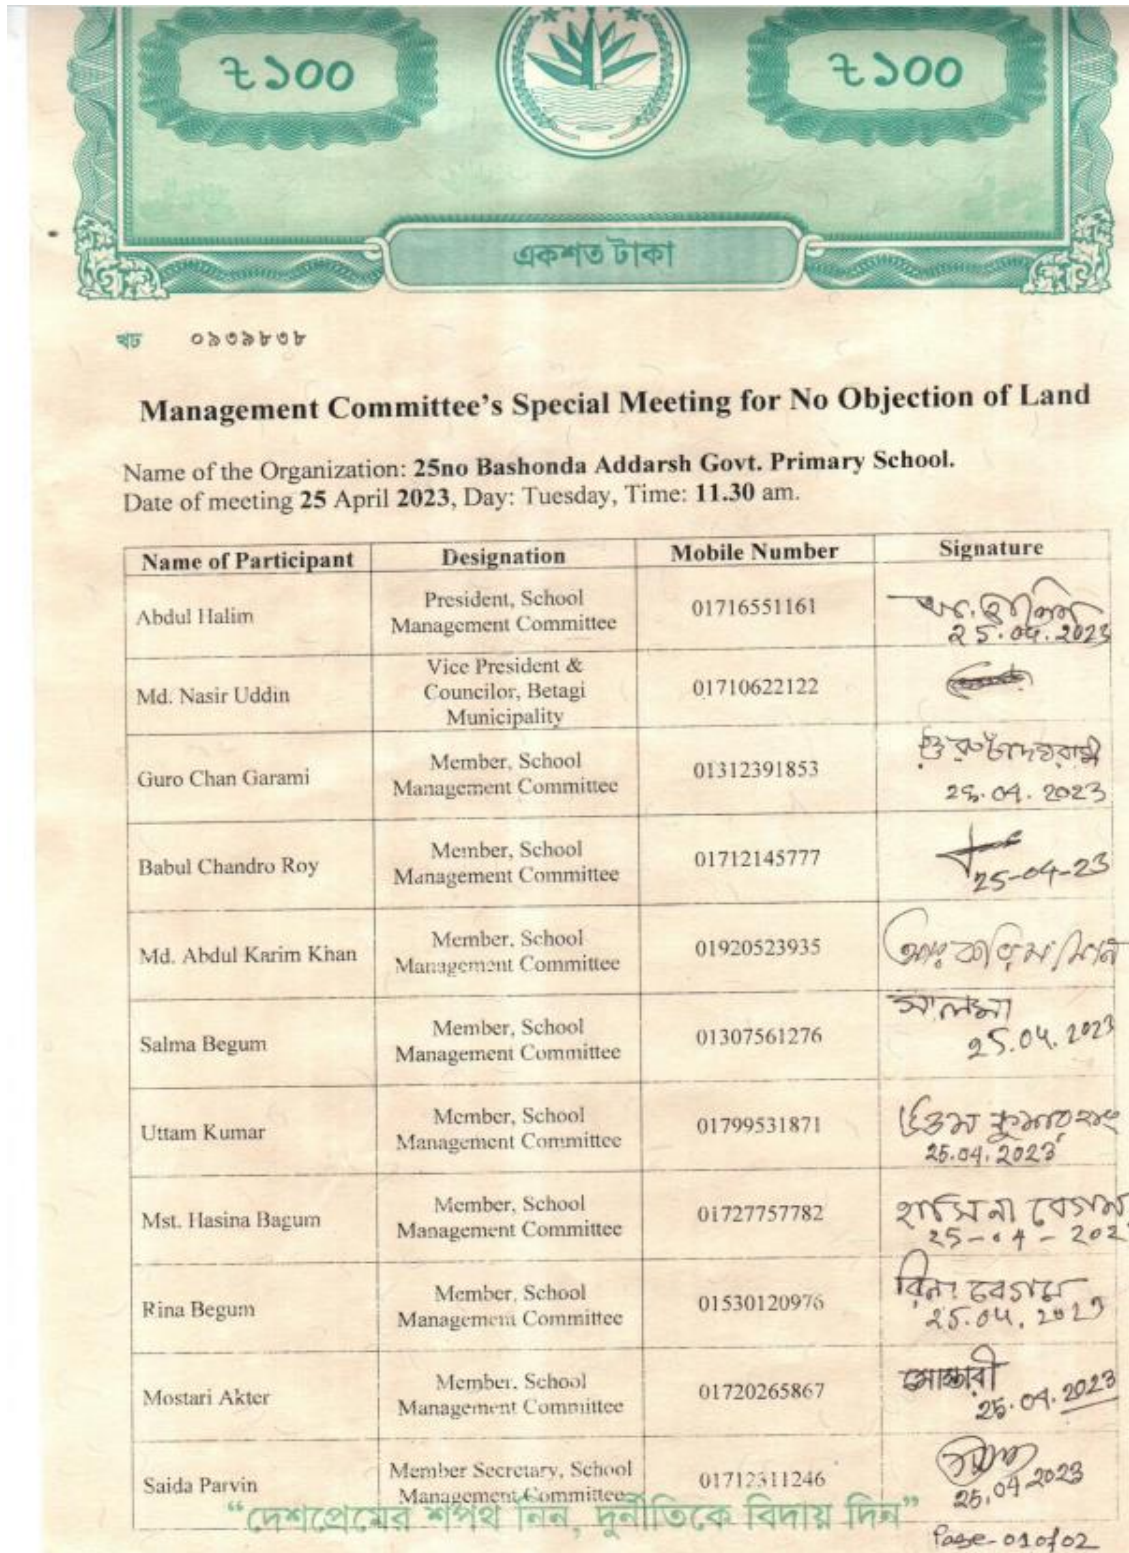 ৳১০০
৳১০০
একশত টাকা
খঢ ০৯৩৯৮৩৮
Management Committee's Special Meeting for No Objection of Land
Name of the Organization: 25no Bashonda Addarsh Govt. Primary School.
Date of meeting 25 April 2023, Day: Tuesday, Time: 11.30 am.
Name of Participant Designation Mobile Number Signature
Abdul Halim President, School Management Committee 01716551161 25.04.2023
Md. Nasir Uddin Vice President & Councilor, Betagi Municipality 01710622122
Guro Chan Garami Member, School Management Committee 01312391853 25.04.2023
Babul Chandro Roy Member, School Management Committee 01712145777 25-04-23
Md. Abdul Karim Khan Member, School Management Committee 01920523935
Salma Begum Member, School Management Committee 01307561276 সালমা 25.04.2023
Uttam Kumar Member, School Management Committee 01799531871 উত্তম কুমার 25.04.2023
Mst. Hasina Bagum Member, School Management Committee 01727757782 হাসিনা বেগম 25-04-202
Rina Begum Member, School Management Committee 01530120976 রিনা বেগম 25.04.2023
Mostari Akter Member, School Management Committee 01720265867 মোস্তারী 25.04.2023
Saida Parvin Member Secretary, School Management Committee 01712311246 25.04.2023
“দেশপ্রেমের শপথ নিন, দুর্নীতিকে বিদায় দিন”
Page-01of02